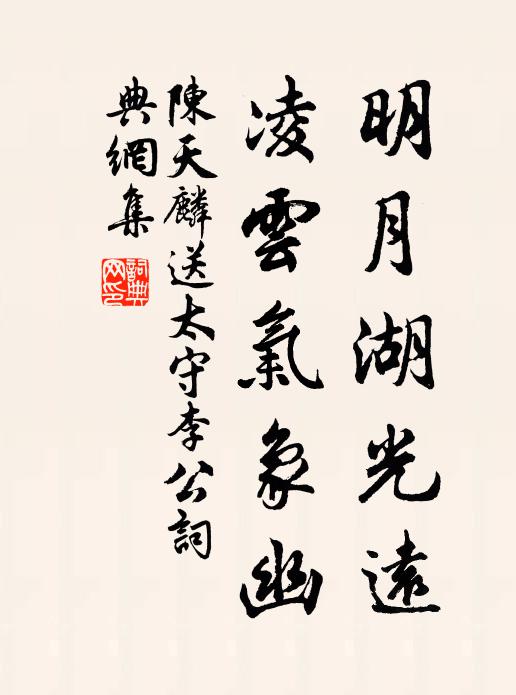 明月湖光遠
凌雲氣象幽
陳天麟送太守李公詞
典網集
詞典
网印